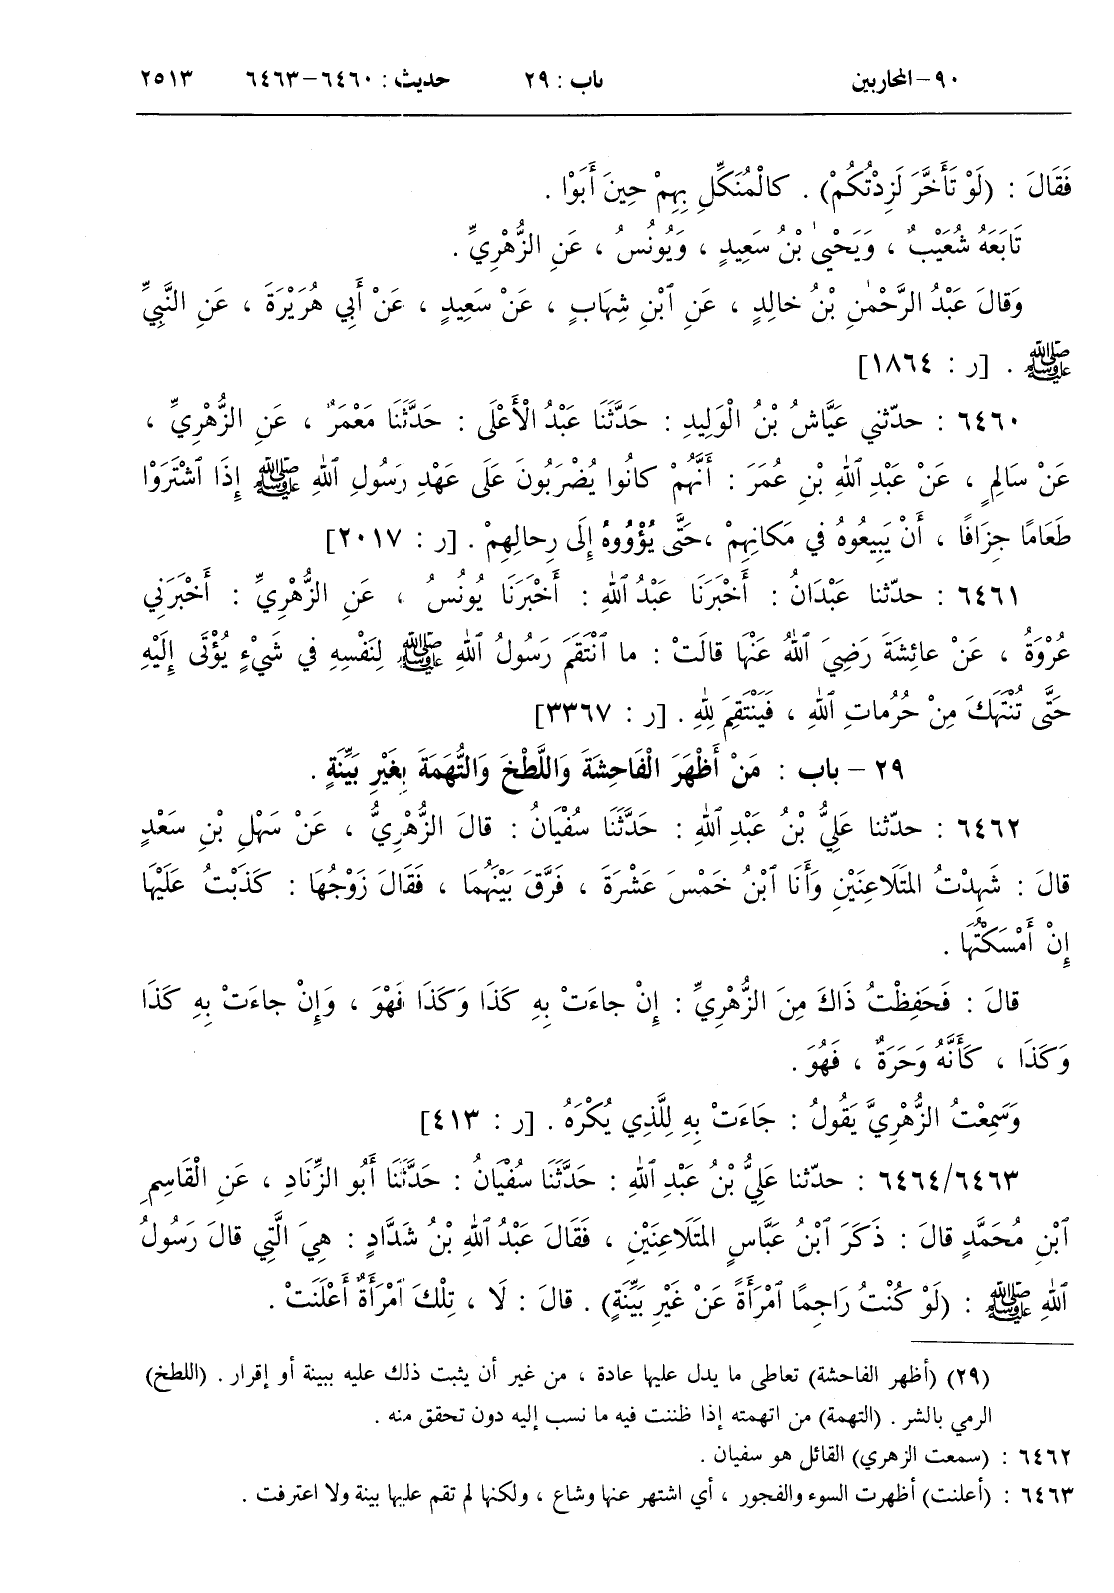 ٩٠ – المحاربين باب : ٢٩ حديث : ٦٤٦٠–٦٤٦٣ ٢٥١٣
فَقَالَ : (لَوْ تَأَخَّرَ لَزِدْتُكُمْ) . كالْمُنَكِّلِ بِهِمْ حِينَ أَبَوْا .
تَابَعَهُ شُعَيْبٌ ، وَيَحْيىٰ بْنُ سَعِيدٍ ، وَيُونُسُ ، عَنِ الزُّهْرِيِّ .
وَقالَ عَبْدُ الرَّحْمٰنِ بْنُ خالِدٍ ، عَنِ ٱبْنِ شِهَابٍ ، عَنْ سَعِيدٍ ، عَنْ أَبِي هُرَيْرَةَ ، عَنِ النَّبِيِّ
ﷺ . [ر : ١٨٦٤]
٦٤٦٠ : حدّثني عَيَّاشُ بْنُ الْوَلِيدِ : حَدَّثَنَا عَبْدُ الْأَعْلَى : حَدَّثَنَا مَعْمَرٌ ، عَنِ الزُّهْرِيِّ ،
عَنْ سَالِمٍ ، عَنْ عَبْدِ ٱللهِ بْنِ عُمَرَ : أَنَّهُمْ كانُوا يُضْرَبُونَ عَلَى عَهْدِ رَسُولِ ٱللهِ ﷺ إِذَا ٱشْتَرَوْا
طَعَامًا جِزَافًا ، أَنْ يَبِيعُوهُ فِي مَكانِهِمْ ،حَتَّى يُؤْوُوهُ إِلَى رِحالِهِمْ . [ر : ٢٠١٧]
٦٤٦١ : حدّثنا عَبْدَانُ : أَخْبَرَنَا عَبْدُ ٱللهِ : أَخْبَرَنَا يُونُسُ ، عَنِ الزُّهْرِيِّ : أَخْبَرَنِي
عُرْوَةُ ، عَنْ عائِشَةَ رَضِيَ ٱللهُ عَنْهَا قالَتْ : ما ٱنْتَقَمَ رَسُولُ ٱللهِ ﷺ لِنَفْسِهِ فِي شَيْءٍ يُؤْتَى إِلَيْهِ
حَتَّى تُنْتَهَكَ مِنْ حُرُماتِ ٱللهِ ، فَيَنْتَقِمَ لِلهِ . [ر : ٣٣٦٧]
٢٩ – باب : مَنْ أَظْهَرَ الْفَاحِشَةَ وَاللَّطْخَ وَالتُّهَمَةَ بِغَيْرِ بَيِّنَةٍ .
٦٤٦٢ : حدّثنا عَلِيُّ بْنُ عَبْدِ ٱللهِ : حَدَّثَنَا سُفْيَانُ : قالَ الزُّهْرِيُّ ، عَنْ سَهْلِ بْنِ سَعْدٍ
قالَ : شَهِدْتُ المتَلَاعِنَيْنِ وَأَنَا ٱبْنُ خَمْسَ عَشْرَةَ ، فَرَّقَ بَيْنَهُمَا ، فَقَالَ زَوْجُهَا : كَذَبْتُ عَلَيْهَا
إِنْ أَمْسَكْتُهَا .
قالَ : فَحَفِظْتُ ذَاكَ مِنَ الزُّهْرِيِّ : إِنْ جاءَتْ بِهِ كَذَا وَكَذَا فَهْوَ ، وَإِنْ جاءَتْ بِهِ كَذَا
وَكَذَا ، كَأَنَّهُ وَحَرَةٌ ، فَهُوَ .
وَسَمِعْتُ الزُّهْرِيَّ يَقُولُ : جَاءَتْ بِهِ لِلَّذِي يُكْرَهُ . [ر : ٤١٣]
٦٤٦٤/٦٤٦٣ : حدّثنا عَلِيُّ بْنُ عَبْدِ ٱللهِ : حَدَّثَنَا سُفْيَانُ : حَدَّثَنَا أَبُو الزِّنَادِ ، عَنِ الْقَاسِمِ
ٱبْنِ مُحَمَّدٍ قالَ : ذَكَرَ ٱبْنُ عَبَّاسٍ المتَلَاعِنَيْنِ ، فَقَالَ عَبْدُ ٱللهِ بْنُ شَدَّادٍ : هِيَ الَّتِي قالَ رَسُولُ
ٱللهِ ﷺ : (لَوْ كُنْتُ رَاجِمًا ٱمْرَأَةً عَنْ غَيْرِ بَيِّنَةٍ) . قالَ : لَا ، تِلْكَ ٱمْرَأَةٌ أَعْلَنَتْ .
(٢٩) (أظهر الفاحشة) تعاطى ما يدل عليها عادة ، من غير أن يثبت ذلك عليه ببينة أو إقرار . (اللطخ)
الرمي بالشر . (التهمة) من اتهمته إذا ظننت فيه ما نسب إليه دون تحقق منه .
٦٤٦٢ : (سمعت الزهري) القائل هو سفيان .
٦٤٦٣ : (أعلنت) أظهرت السوء والفجور ، أي اشتهر عنها وشاع ، ولكنها لم تقم عليها بينة ولا اعترفت .